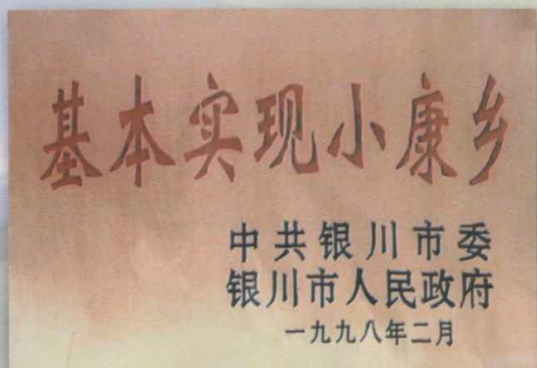 基本实现小康乡
中共银川市委
银川市人民政府
一九九八年二月